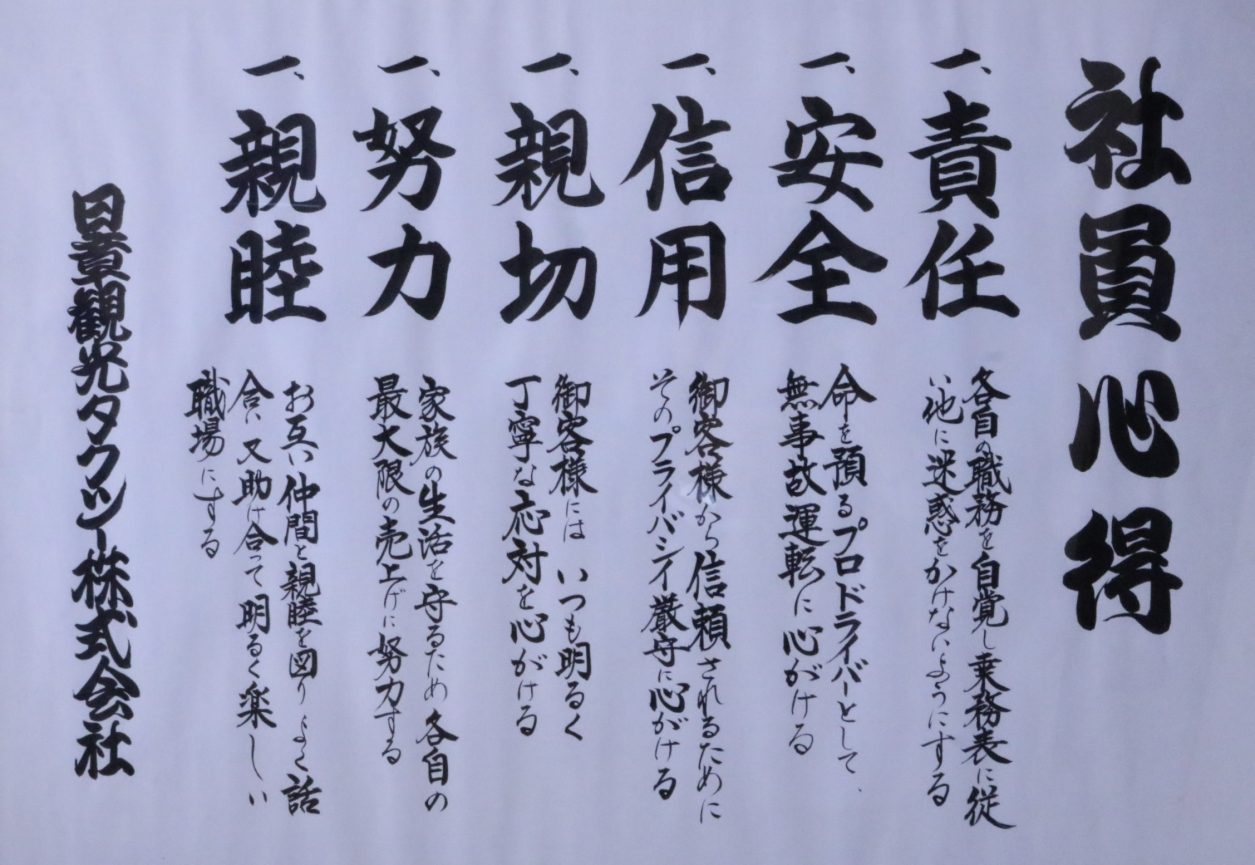 社員心得
一、責任
各自の職務を自覚し乗務表に従
い他に迷惑をかけないようにする
一、安全
命を預るプロドライバーとして、
無事故運転に心がける
一、信用
御客様から信頼されるために
そのプライバシイ厳守に心がける
一、親切
御客様には いつも明るく
丁寧な応対を心がける
一、努力
家族の生活を守るため各自の
最大限の売上げに努力する
一、親睦
お互い仲間と親睦を図りよく話
合い又助け合って明るく楽しい
職場にする
日章観光タクシー株式会社